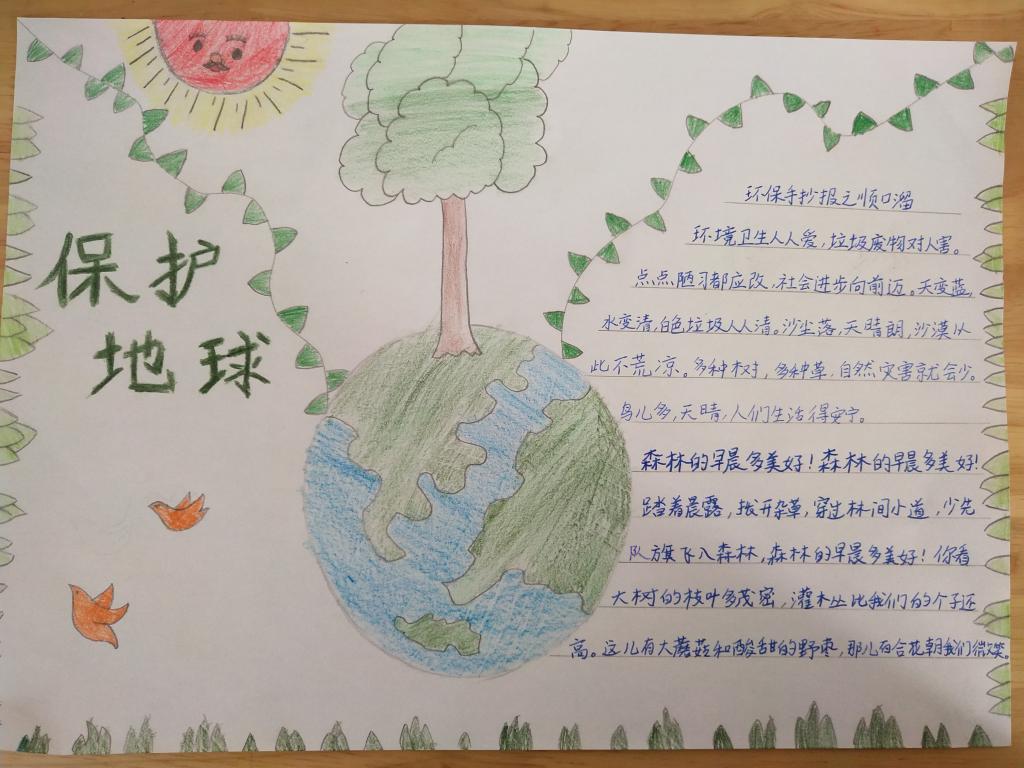 保护
地球
环保手抄报之顺口溜
环境卫生人人爱,垃圾废物对人害。
点点陋习都应改,社会进步向前迈。天变蓝,
水变清,白色垃圾人人清。沙尘落,天晴朗,沙漠从
此不荒凉。多种树,多种草,自然灾害就会少。
鸟儿多,天晴,人们生活得安宁。
森林的早晨多美好!森林的早晨多美好!
踏着晨露,拨开杂草,穿过林间小道,少先
队旗飞入森林,森林的早晨多美好!你看
大树的枝叶多茂密,灌木丛比我们的个子还
高。这儿有大蘑菇和酸甜的野枣,那儿百合花朝我们微笑。